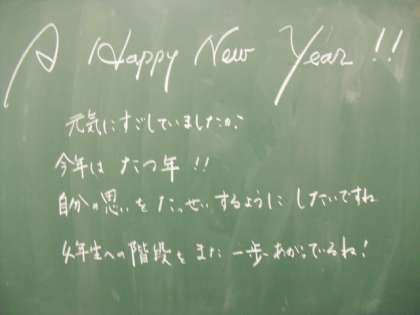 A Happy New Year!!
元気にすごしていましたか?
今年は たつ年!!
自分の思いを たっせいするように したいですね
4年生への階段を また 一歩あがっているね!